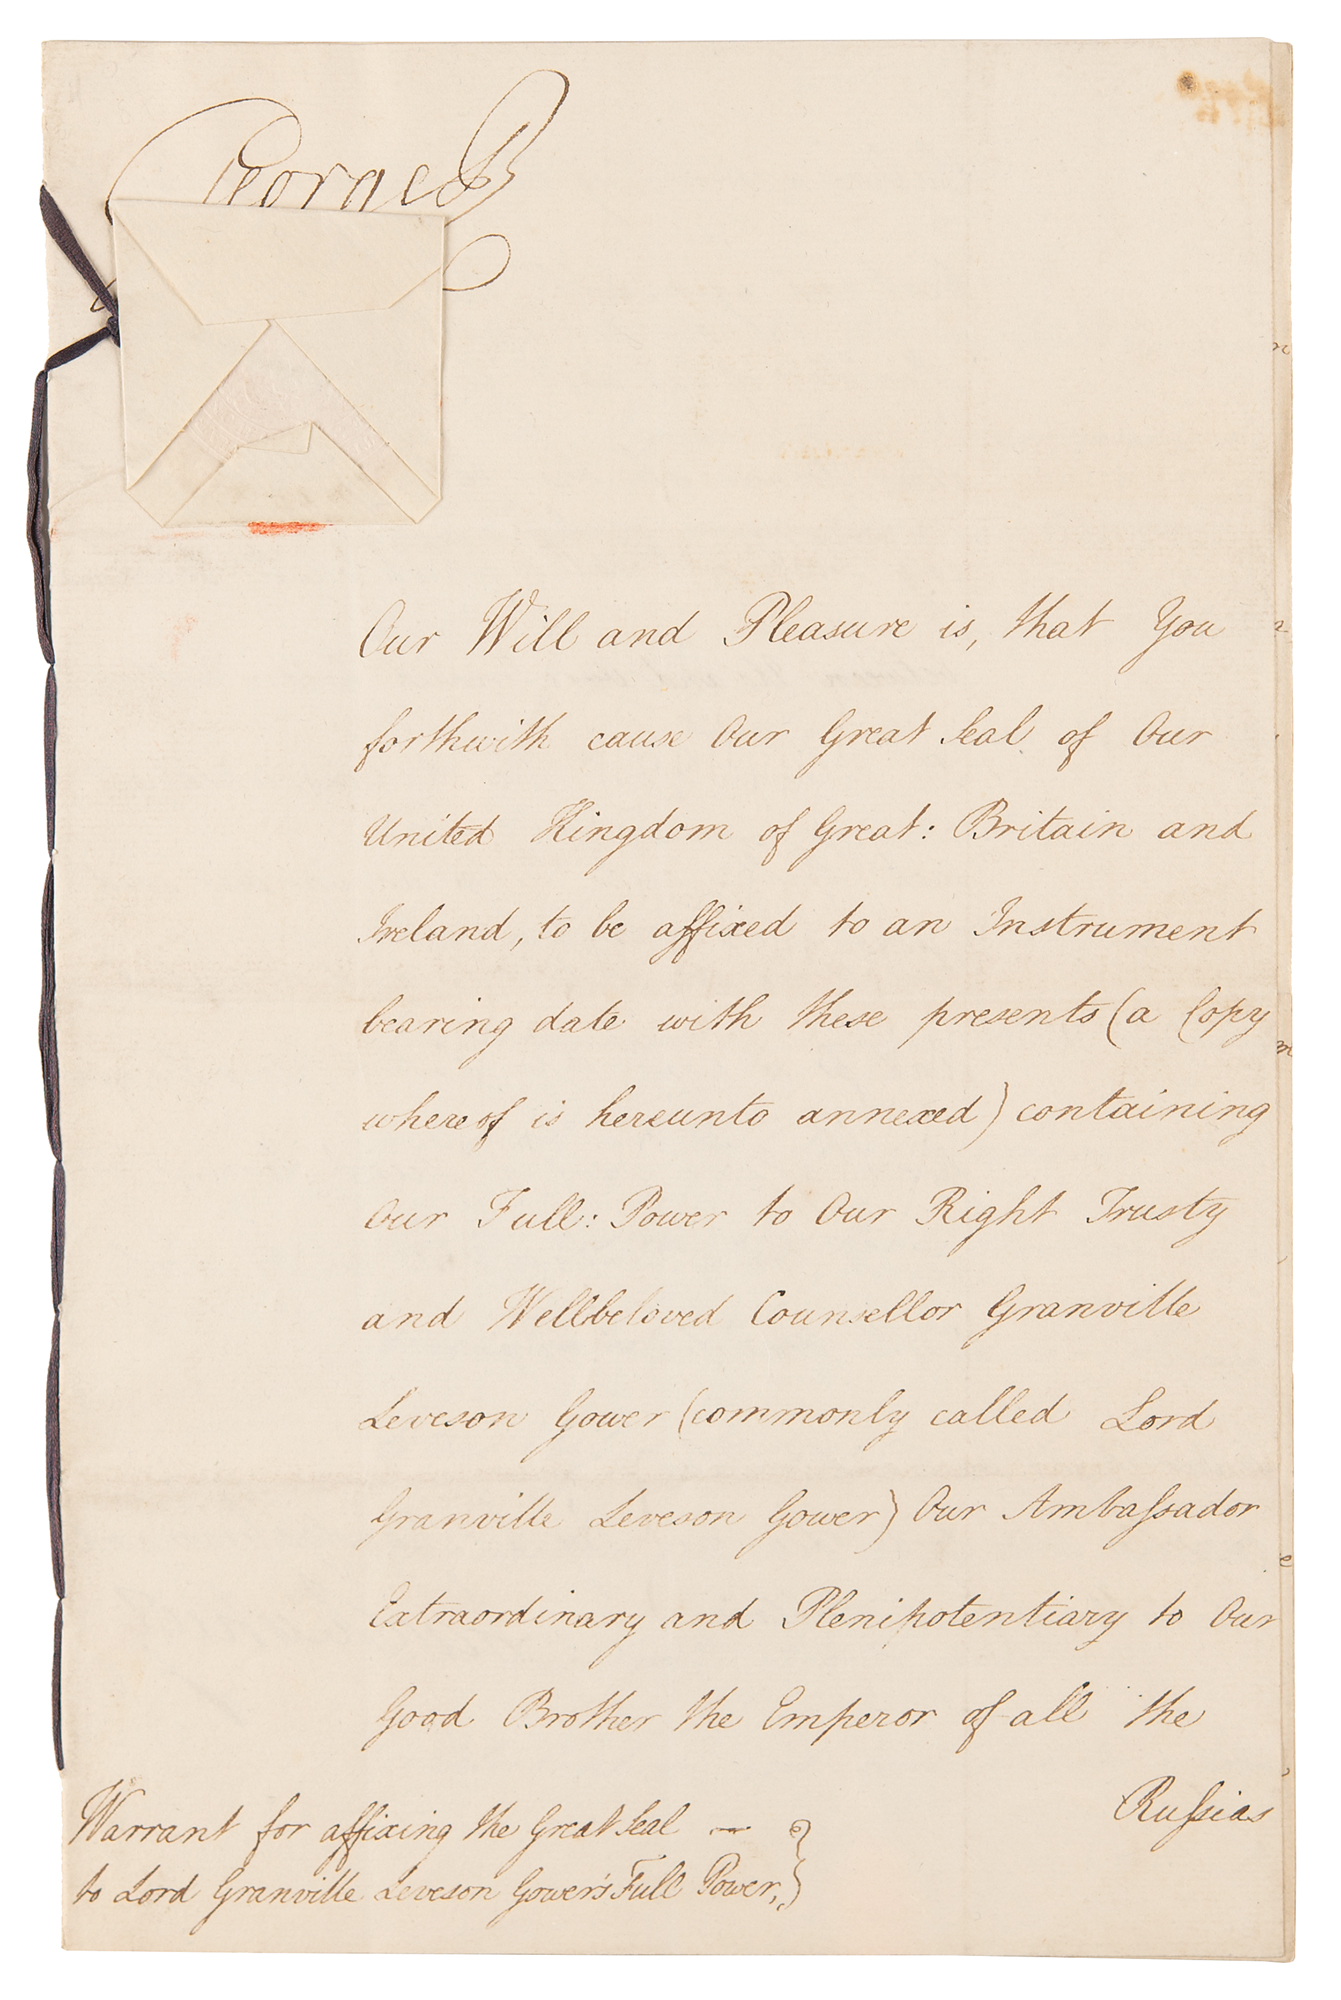 George R
Our Will and Pleasure is, that You
forthwith cause Our Great Seal of Our
United Kingdom of Great: Britain and
Ireland, to be affixed to an Instrument
bearing date with these presents (a Copy
whereof is hereunto annexed) containing
Our Full: Power to Our Right Trusty
and Wellbeloved Counsellor Granville
Leveson Gower (commonly called Lord
Granville Leveson Gower) Our Ambaſsador
Extraordinary and Plenipotentiary to Our
Good Brother the Emperor of all the
Ruſsias
Warrant for affixing the Great Seal —
to Lord Granville Leveson Gower's Full Power,